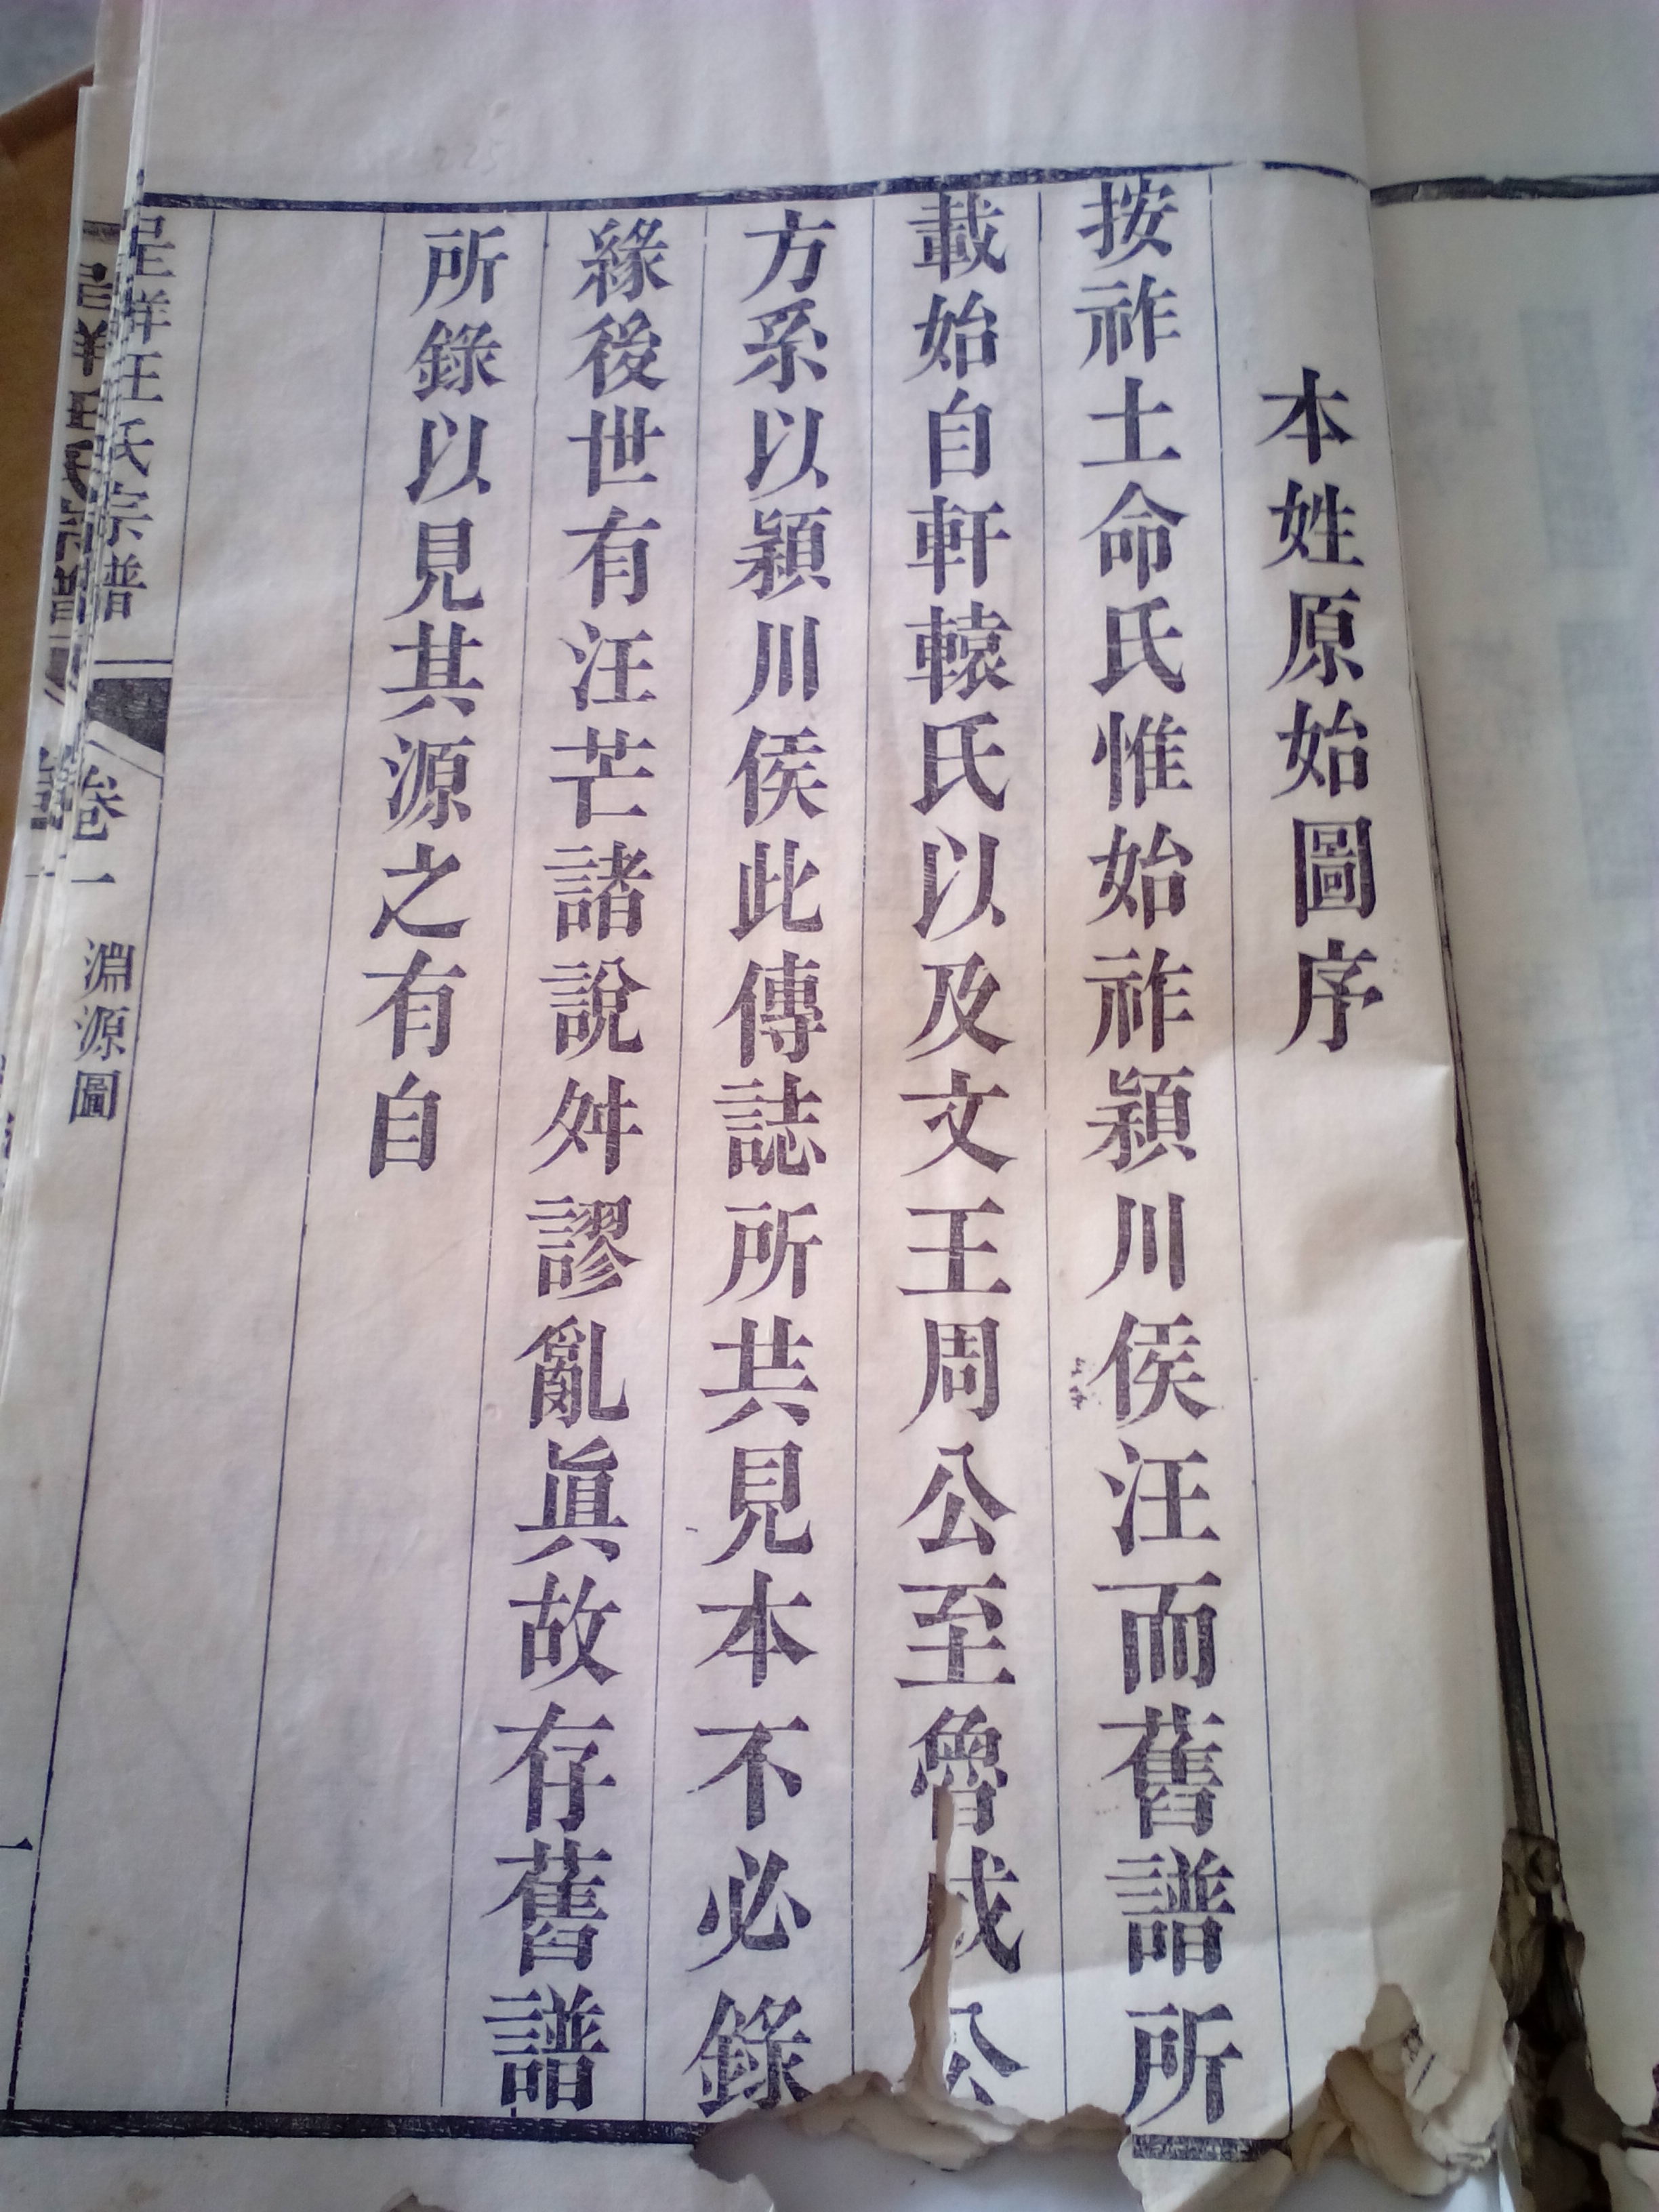 本姓原始圖序
按祚土命氏惟始祚潁川侯汪而舊譜所
載始自軒轅氏以及文王周公至魯成公
方系以潁川侯此傳誌所共見本不必錄
緣後世有汪芒諸說舛謬亂眞故存舊譜
所錄以見其源之有自
汪氏宗譜
卷一
淵源圖
一